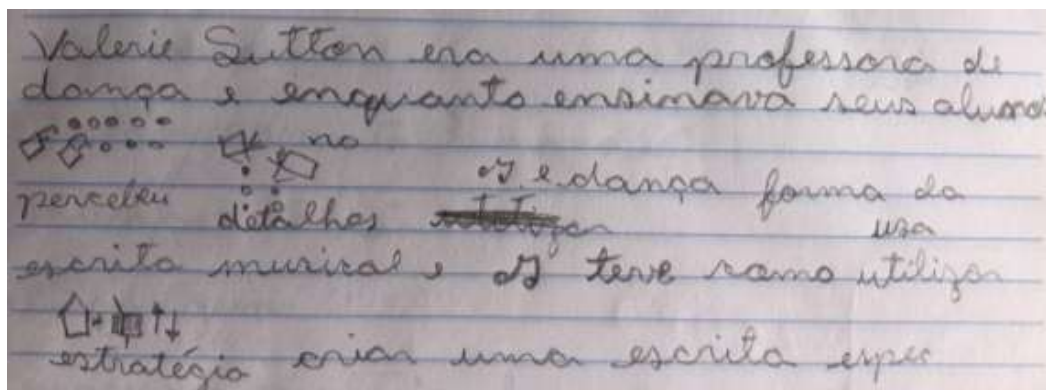 Valerie Sutton era uma professora de
dança e enquanto ensinava seus alunos
no
perceberu detalhes e dança forma da
usa
escrita musical, teve como utilizar
estratégia criar uma escrita espec